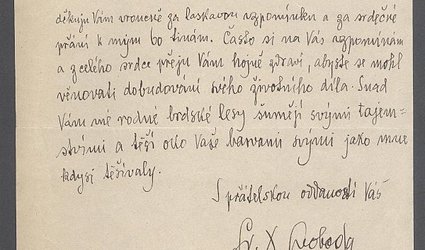 děkuji Vám vroucně za laskavou vzpomínku a za srdečné
přání k mým 60 tinám. Často si na Vás vzpomínám
a z celého srdce přeju Vám hojně zdraví, abyste se mohl
věnovati dobudování svého životního díla. Snad
Vám mé rodné brdské lesy šumějí svými tajem-
stvími a těší oko Vaše barvami svými jako mne
kdysi těšívaly.
S přátelskou oddaností Váš
Fr. X. Svoboda